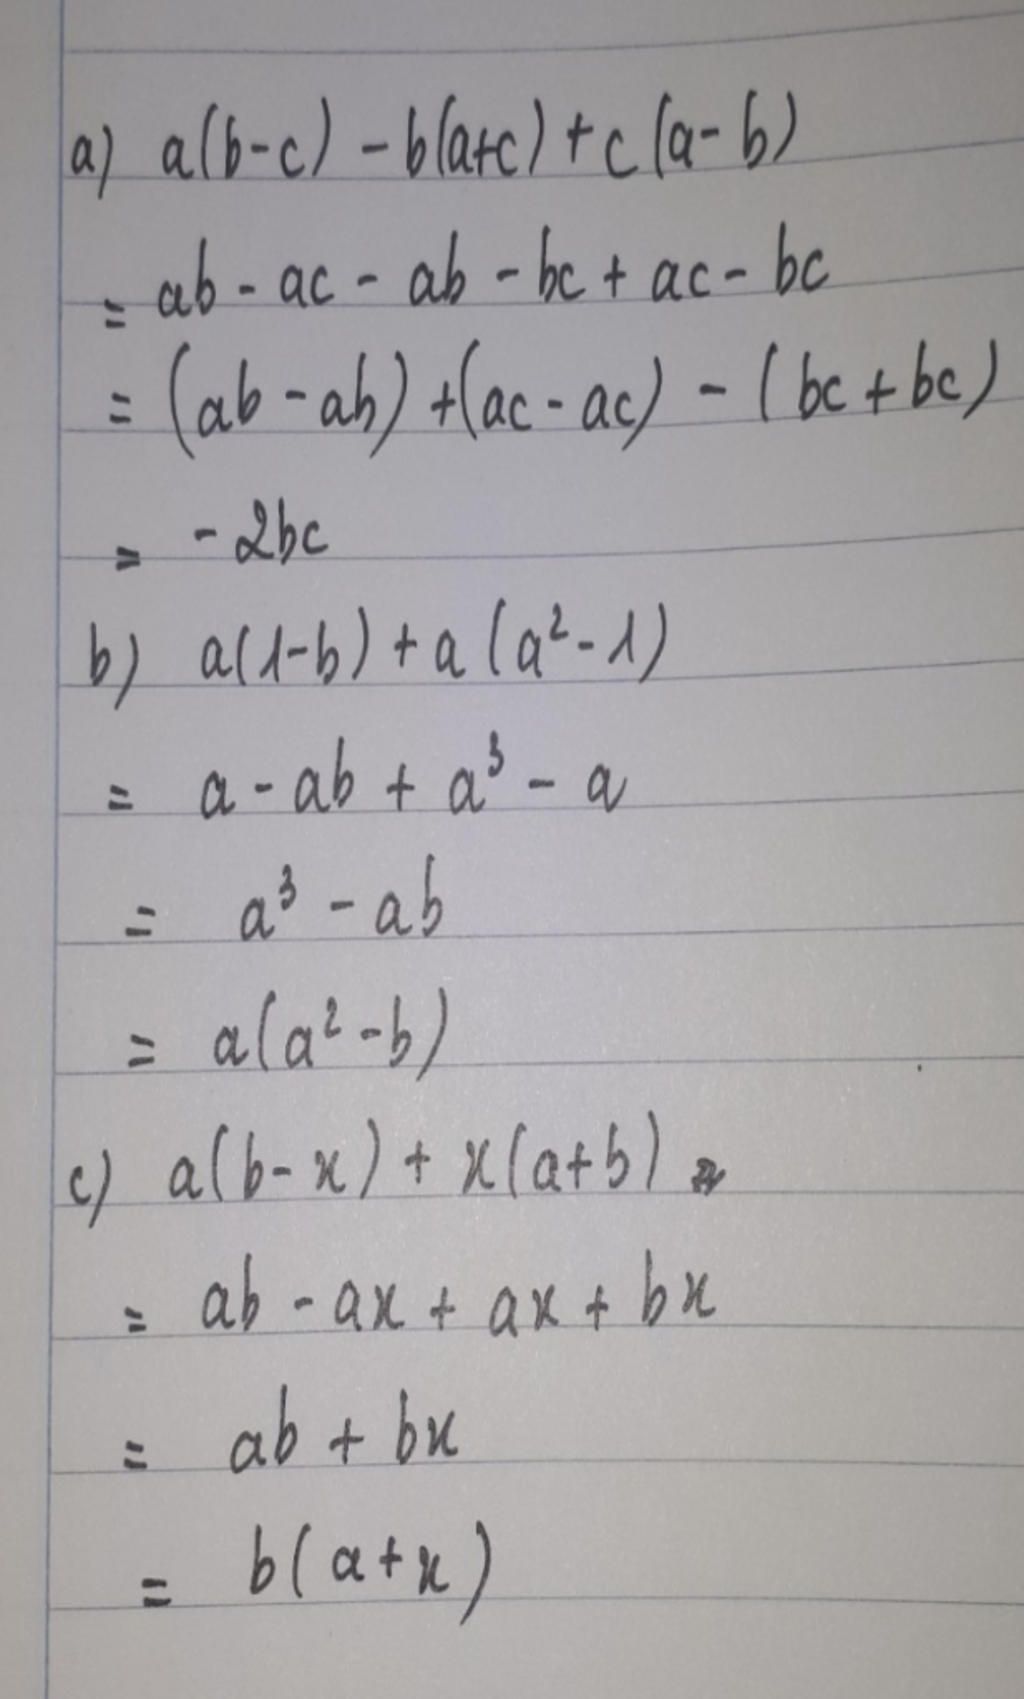 a) a(b-c) - b(a+c) + c(a-b)
= ab - ac - ab - bc + ac - bc
= (ab - ab) + (ac - ac) - (bc + bc)
= -2bc
b) a(1-b) + a(a² - 1)
= a - ab + a³ - a
= a³ - ab
= a(a² - b)
c) a(b - x) + x(a+b)
= ab - ax + ax + bx
= ab + bx
= b(a + x)